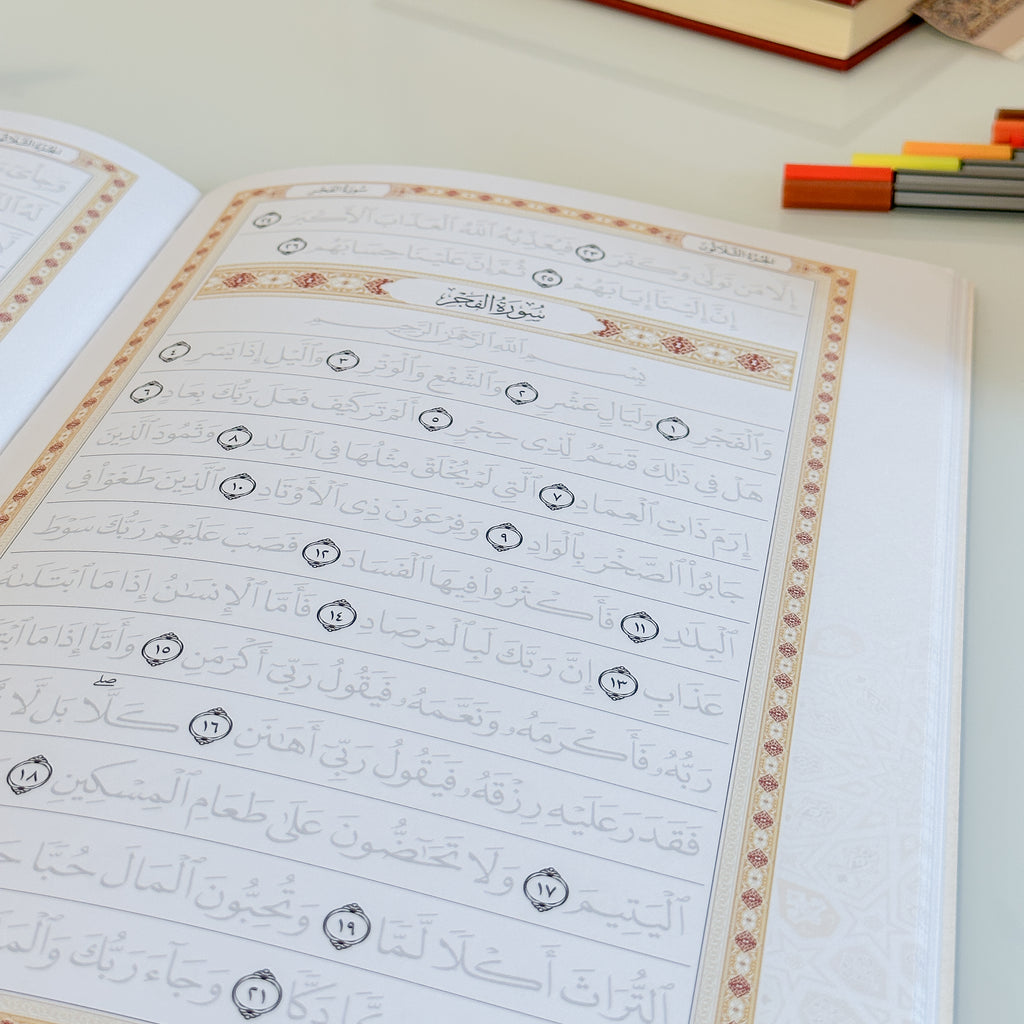 سُورَةُ الفَجْرِ
الجُزْءُ الثَّلَاثُونَ
إِلَّا مَن تَوَلَّىٰ وَكَفَرَ ٢٣ فَيُعَذِّبُهُ ٱللَّهُ ٱلْعَذَابَ ٱلْأَكْبَرَ ٢٤
إِنَّ إِلَيْنَا إِيَابَهُمْ ٢٥ ثُمَّ إِنَّ عَلَيْنَا حِسَابَهُم ٢٦
سُورَةُ الفَجْرِ
بِسْمِ ٱللَّهِ ٱلرَّحْمَٰنِ ٱلرَّحِيمِ
وَٱلْفَجْرِ ١ وَلَيَالٍ عَشْرٍ ٢ وَٱلشَّفْعِ وَٱلْوَتْرِ ٣ وَٱلَّيْلِ إِذَا يَسْرِ ٤
هَلْ فِي ذَٰلِكَ قَسَمٌ لِّذِي حِجْرٍ ٥ أَلَمْ تَرَ كَيْفَ فَعَلَ رَبُّكَ بِعَادٍ ٦
إِرَمَ ذَاتِ ٱلْعِمَادِ ٧ ٱلَّتِي لَمْ يُخْلَقْ مِثْلُهَا فِي ٱلْبِلَٰدِ ٨ وَثَمُودَ ٱلَّذِينَ
جَابُوا۟ ٱلصَّخْرَ بِٱلْوَادِ ٩ وَفِرْعَوْنَ ذِي ٱلْأَوْتَادِ ١٠ ٱلَّذِينَ طَغَوْا۟ فِي
ٱلْبِلَٰدِ ١١ فَأَكْثَرُوا۟ فِيهَا ٱلْفَسَادَ ١٢ فَصَبَّ عَلَيْهِمْ رَبُّكَ سَوْطَ
عَذَابٍ ١٣ إِنَّ رَبَّكَ لَبِٱلْمِرْصَادِ ١٤ فَأَمَّا ٱلْإِنسَٰنُ إِذَا مَا ٱبْتَلَىٰهُ
رَبُّهُۥ فَأَكْرَمَهُۥ وَنَعَّمَهُۥ فَيَقُولُ رَبِّىٓ أَكْرَمَنِ ١٥ وَأَمَّآ إِذَا مَا
فَقَدَرَ عَلَيْهِ رِزْقَهُۥ فَيَقُولُ رَبِّىٓ أَهَٰنَنِ ١٦ كَلَّا ۖ بَل لَّا
ٱلْيَتِيمَ ١٧ وَلَا تَحَٰٓضُّونَ عَلَىٰ طَعَامِ ٱلْمِسْكِينِ ١٨
ٱلتُّرَاثَ أَكْلًا لَّمًّا ١٩ وَتُحِبُّونَ ٱلْمَالَ حُبًّا
دَكًّا ٢١ وَجَآءَ رَبُّكَ